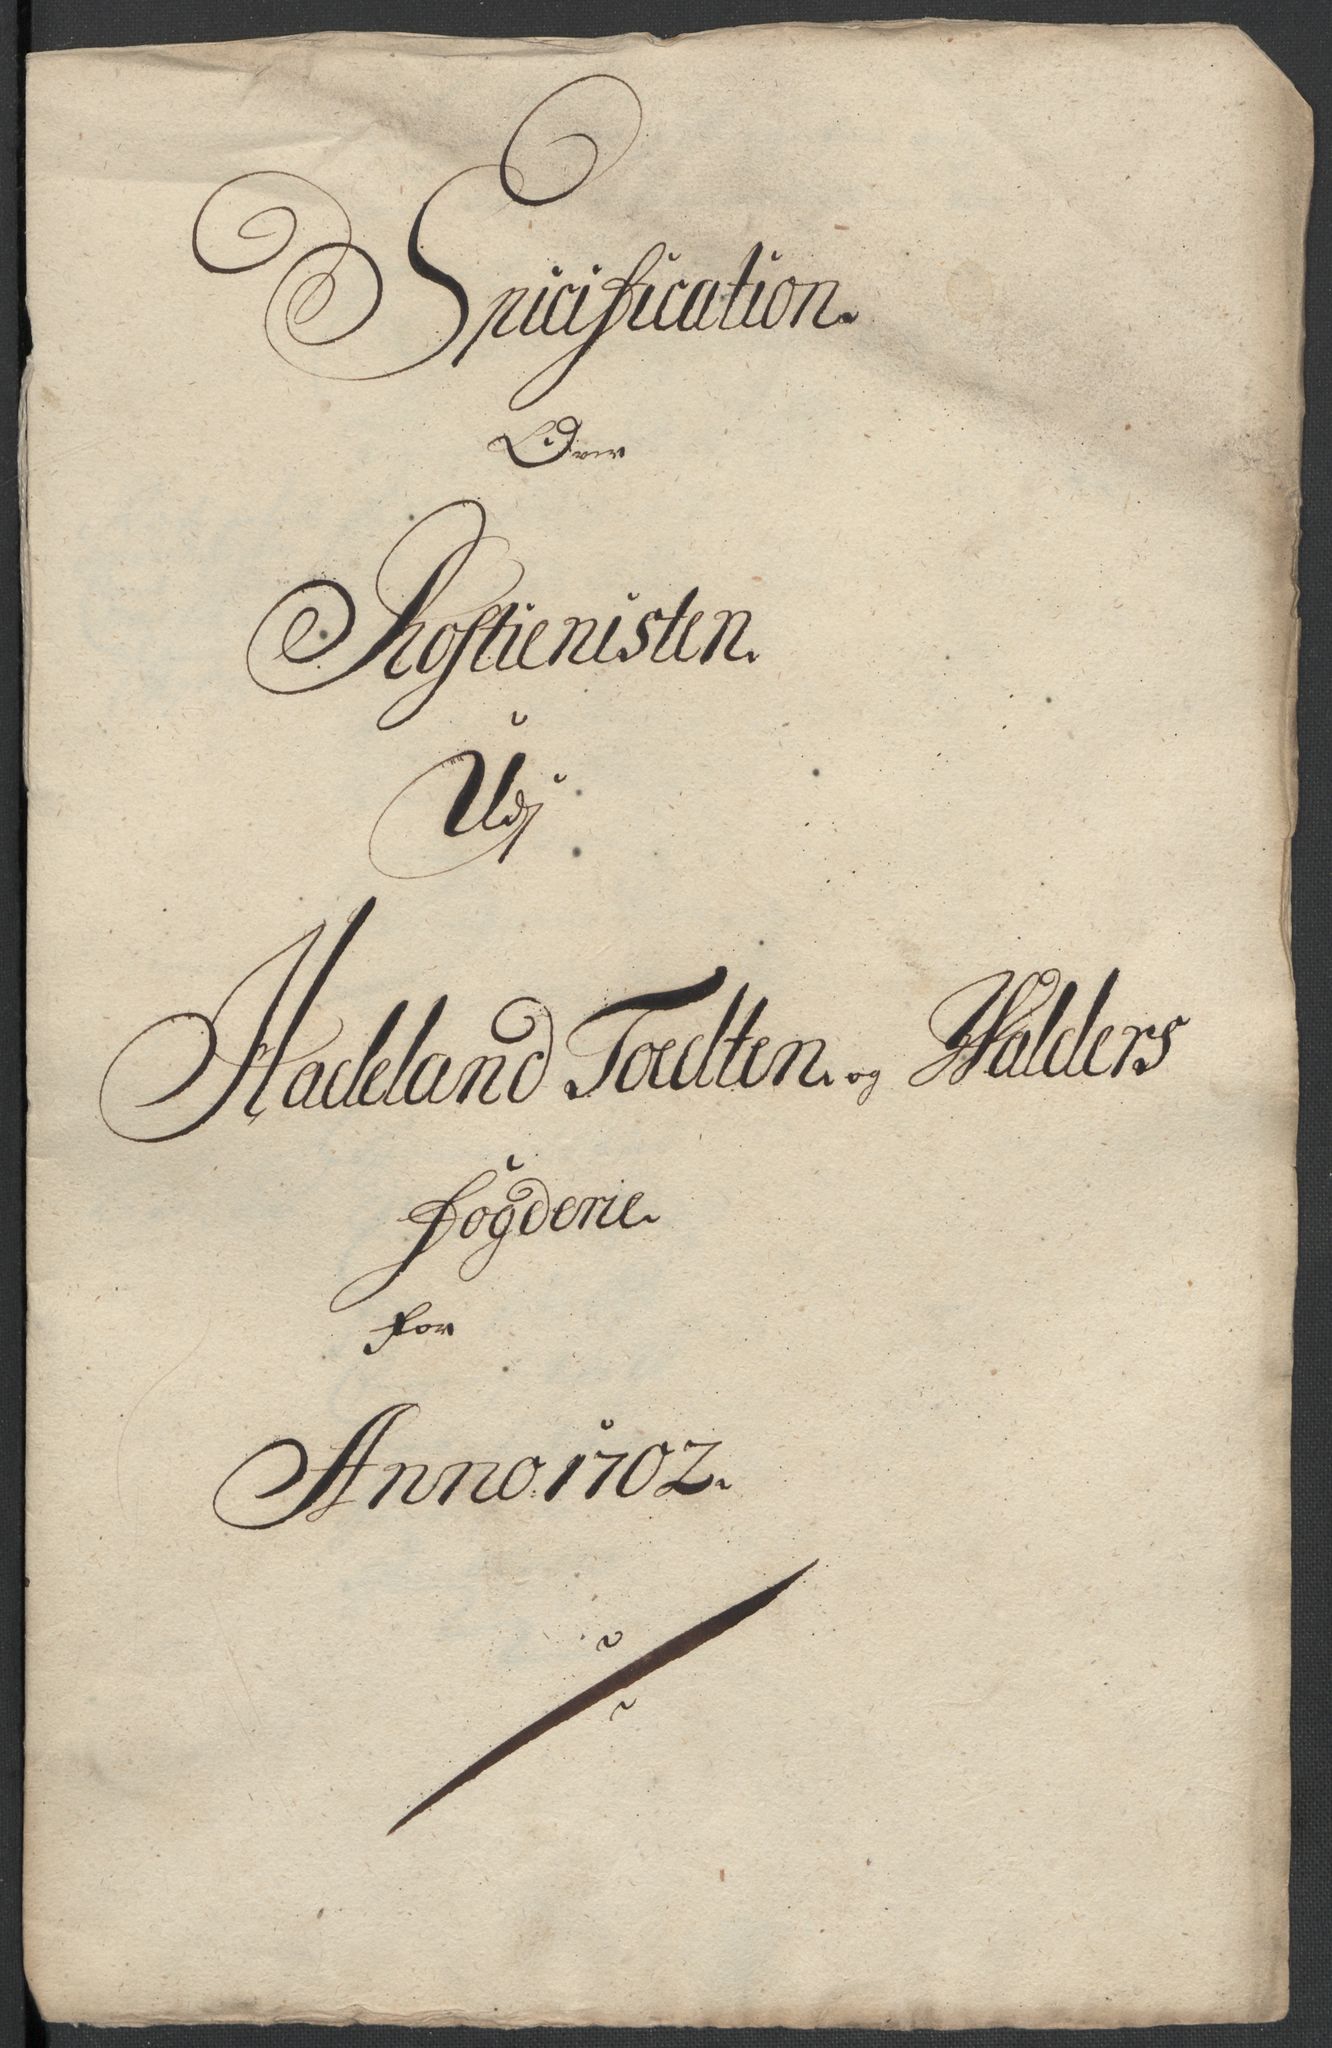 Specification.
Over
Rostienisten.
Udj
Hadeland Toedten. og Walders
fogderie.
for
Anno. 1702.